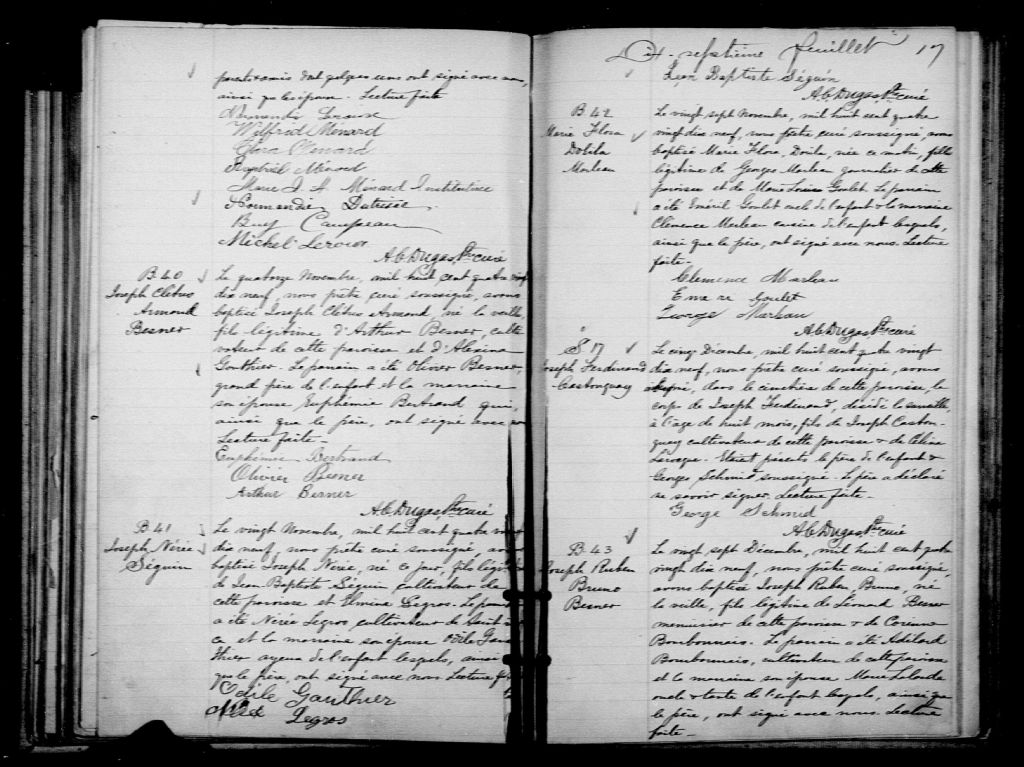 parents & amis dont quelques uns ont signé avec nous,
ainsi que les époux. Lecture faite
Wilfrid Menard
Menard
Marie J. A. Ménard Institutrice
Normandie
Michel Leroux
A. C. Dugas Ptre curé
B. 40
Joseph Clétus
Armond
Besner
Le quatorze Novembre, mil huit cent quatre vingt
dix neuf, nous prêtre curé soussigné, avons
baptisé Joseph Clétus Armond, né la veille,
fils légitime d'Arthur Besner, culti
vateur de cette paroisse et d'Alexina
Gauthier. Le parrain a été Olivier Besner,
grand père de l'enfant et la marraine
son épouse Euphémie Bertrand qui,
ainsi que le père, ont signé avec nous
Lecture faite_
Euphémie Bertrand
Olivier Besner
Arthur Besner
A. C. Dugas Ptre curé
B. 41
Joseph Nérée
Séguin
Le vingt Novembre, mil huit cent quatre vingt
dix neuf, nous prêtre curé soussigné, avons
baptisé Joseph Nérée, né ce jour, fils légitime
de Jean Baptiste Séguin cultivateur de
cette paroisse et Elmire Legros. Le parrain
a été Nérée Legros, cultivateur de Saint
et la marraine son épouse Odile Gau
thier ayeux de l'enfant lesquels, ainsi
que le père, ont signé avec nous Lecture faite
Odile Gauthier
Legros
Dix-septième feuillet 17
Jean Baptiste Séguin
A. C. Dugas, Ptre curé
B 42
Marie Flora
Doïla
Marleau
Le vingt sept Novembre, mil huit cent quatre
vingt dix neuf, nous prêtre curé soussigné, avons
baptisé Marie Flora, Doïla, née ce matin, fille
légitime de Georges Marleau journalier de cette
paroisse et de Marie Louise Goulet. Le parrain
a été Eméril Goulet oncle de l'enfant & la marraine
Clémence Marleau cousine de l'enfant lesquels,
ainsi que le père, ont signé avec nous. Lecture
faite_
Clemence Marleau
Goulet
George Marleau
A. C. Dugas Ptre curé
S 17
Joseph Ferdinand
Castonguay
Le cinq Décembre, mil huit cent quatre vingt
dix neuf, nous prêtre curé soussigné, avons
inhumé, dans le cimetière de cette paroisse, le
corps de Joseph Ferdinand, décédé
à l'âge de huit mois, fils de Joseph Caston-
guay cultivateur de cette paroisse & de
Etaient présents le père de l'enfant &
Georges Schmid soussigné. Le père a déclaré
ne savoir signer. Lecture faite_
George Schmid
A. C. Dugas, Ptre curé
B 43
Joseph Ruben
Bruno
Besner
Le vingt sept Décembre, mil huit cent quatre
vingt dix neuf, nous prêtre curé soussigné,
avons baptisé Joseph Ruben, Bruno, né
la veille, fils légitime de Léonard Besner
menuisier de cette paroisse & de Corinne
Bourbonnais. Le parrain a été Adélard
Bourbonnais, cultivateur de cette paroisse
et la marraine son épouse Marie Lalonde
oncle & tante de l'enfant lesquels, ainsi que
le père, ont signé avec nous. Lecture
faite_